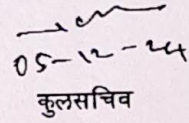 05-12-24
कुलसचिव